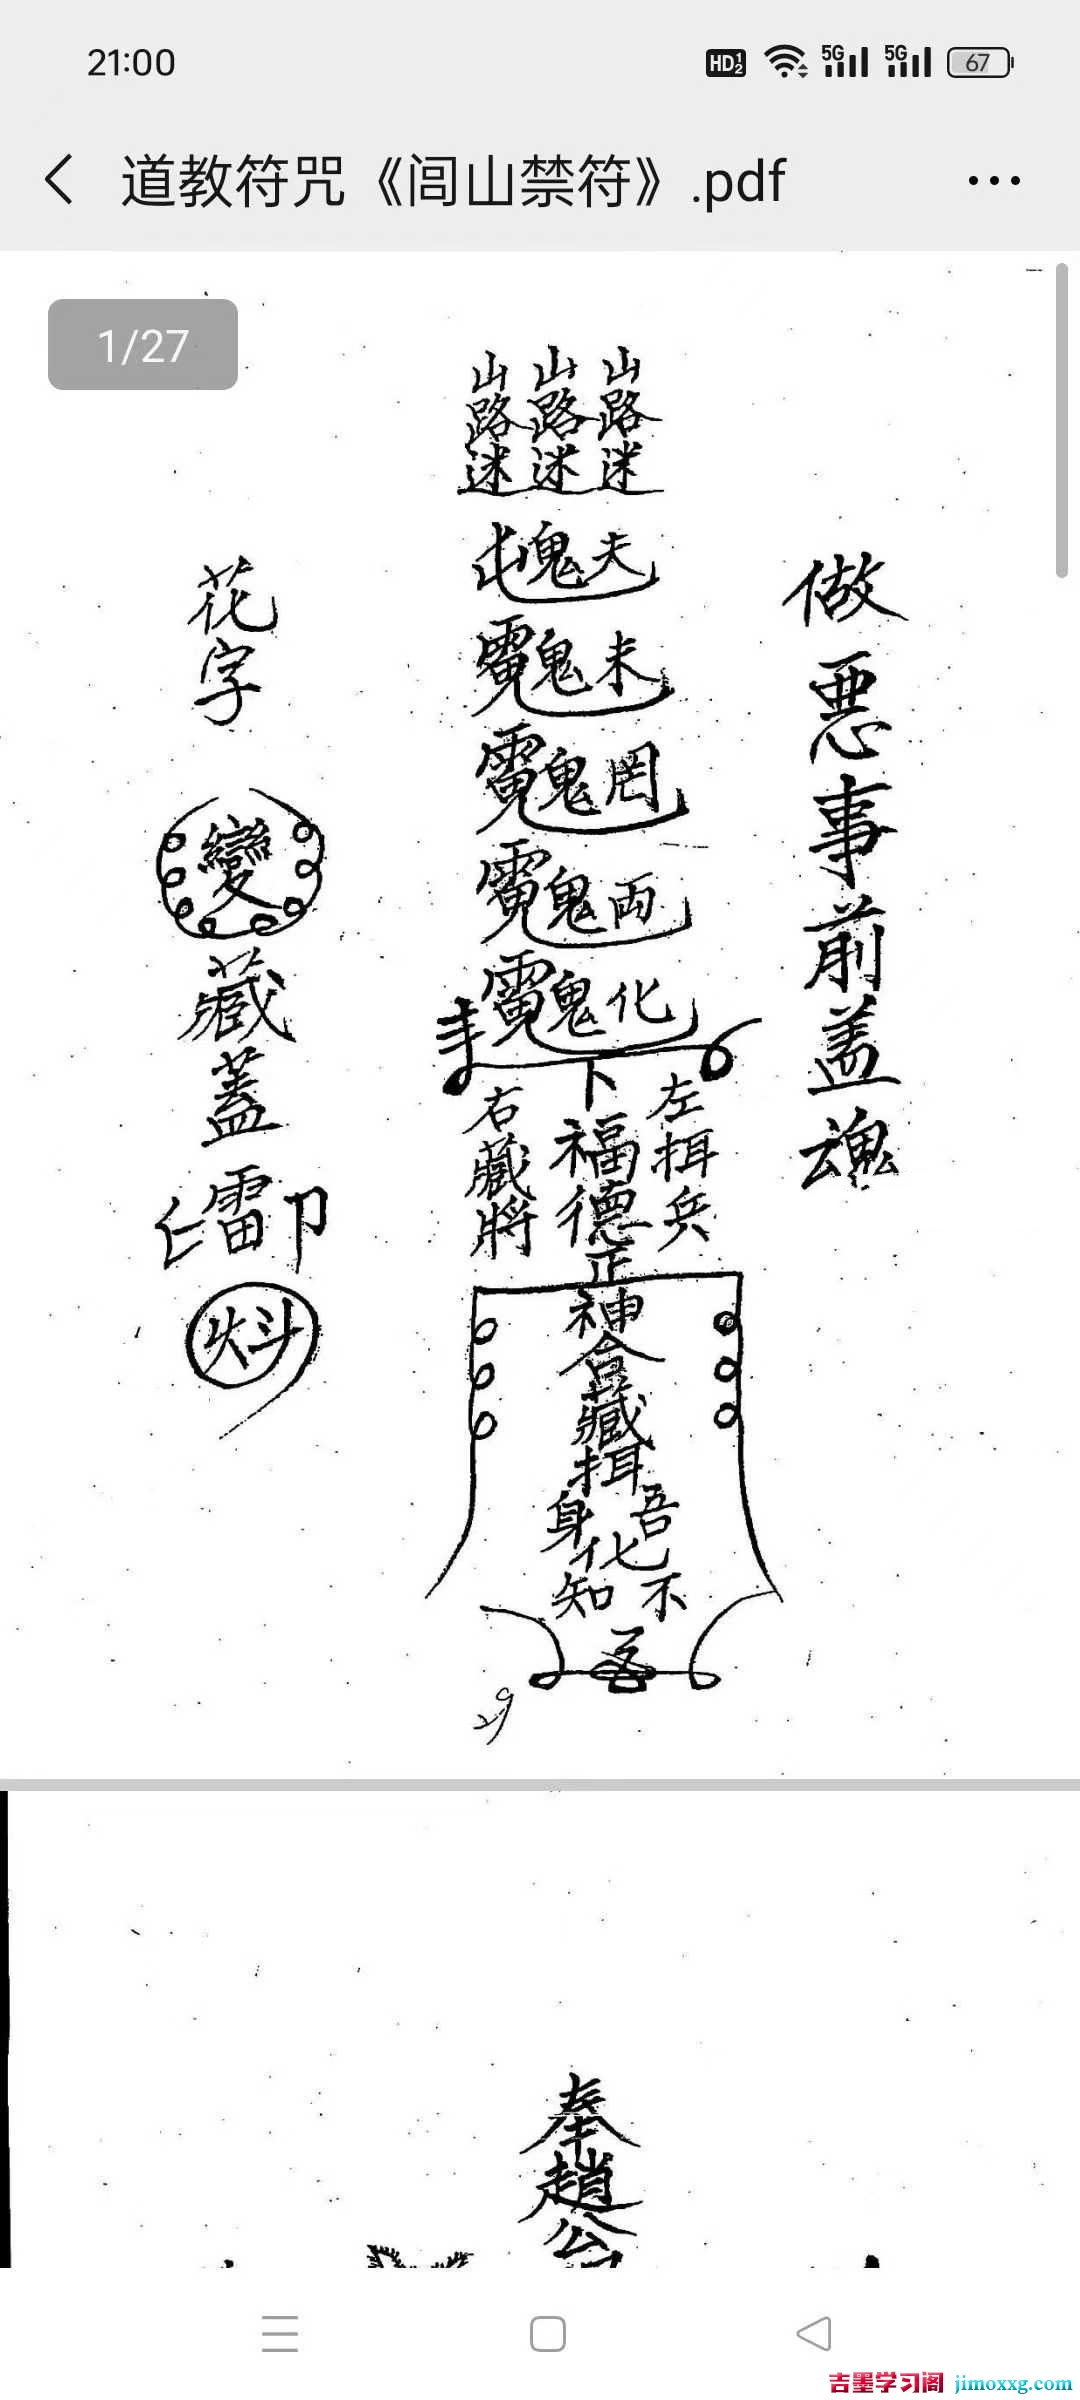 21:00
HD 1 2 5G 5G 67
道教符咒《闾山禁符》.pdf
1/27
做恶事前盖魂
山路迷
山路迷
山路迷
鬼夫
鬼未
鬼罔
鬼両
鬼化
下
左揖兵
福德正神合藏揖
右藏將
吾身化
不知
花字
變
藏蓋
雷
29
奉趙公
吉墨学习阁 jimoxxg.com